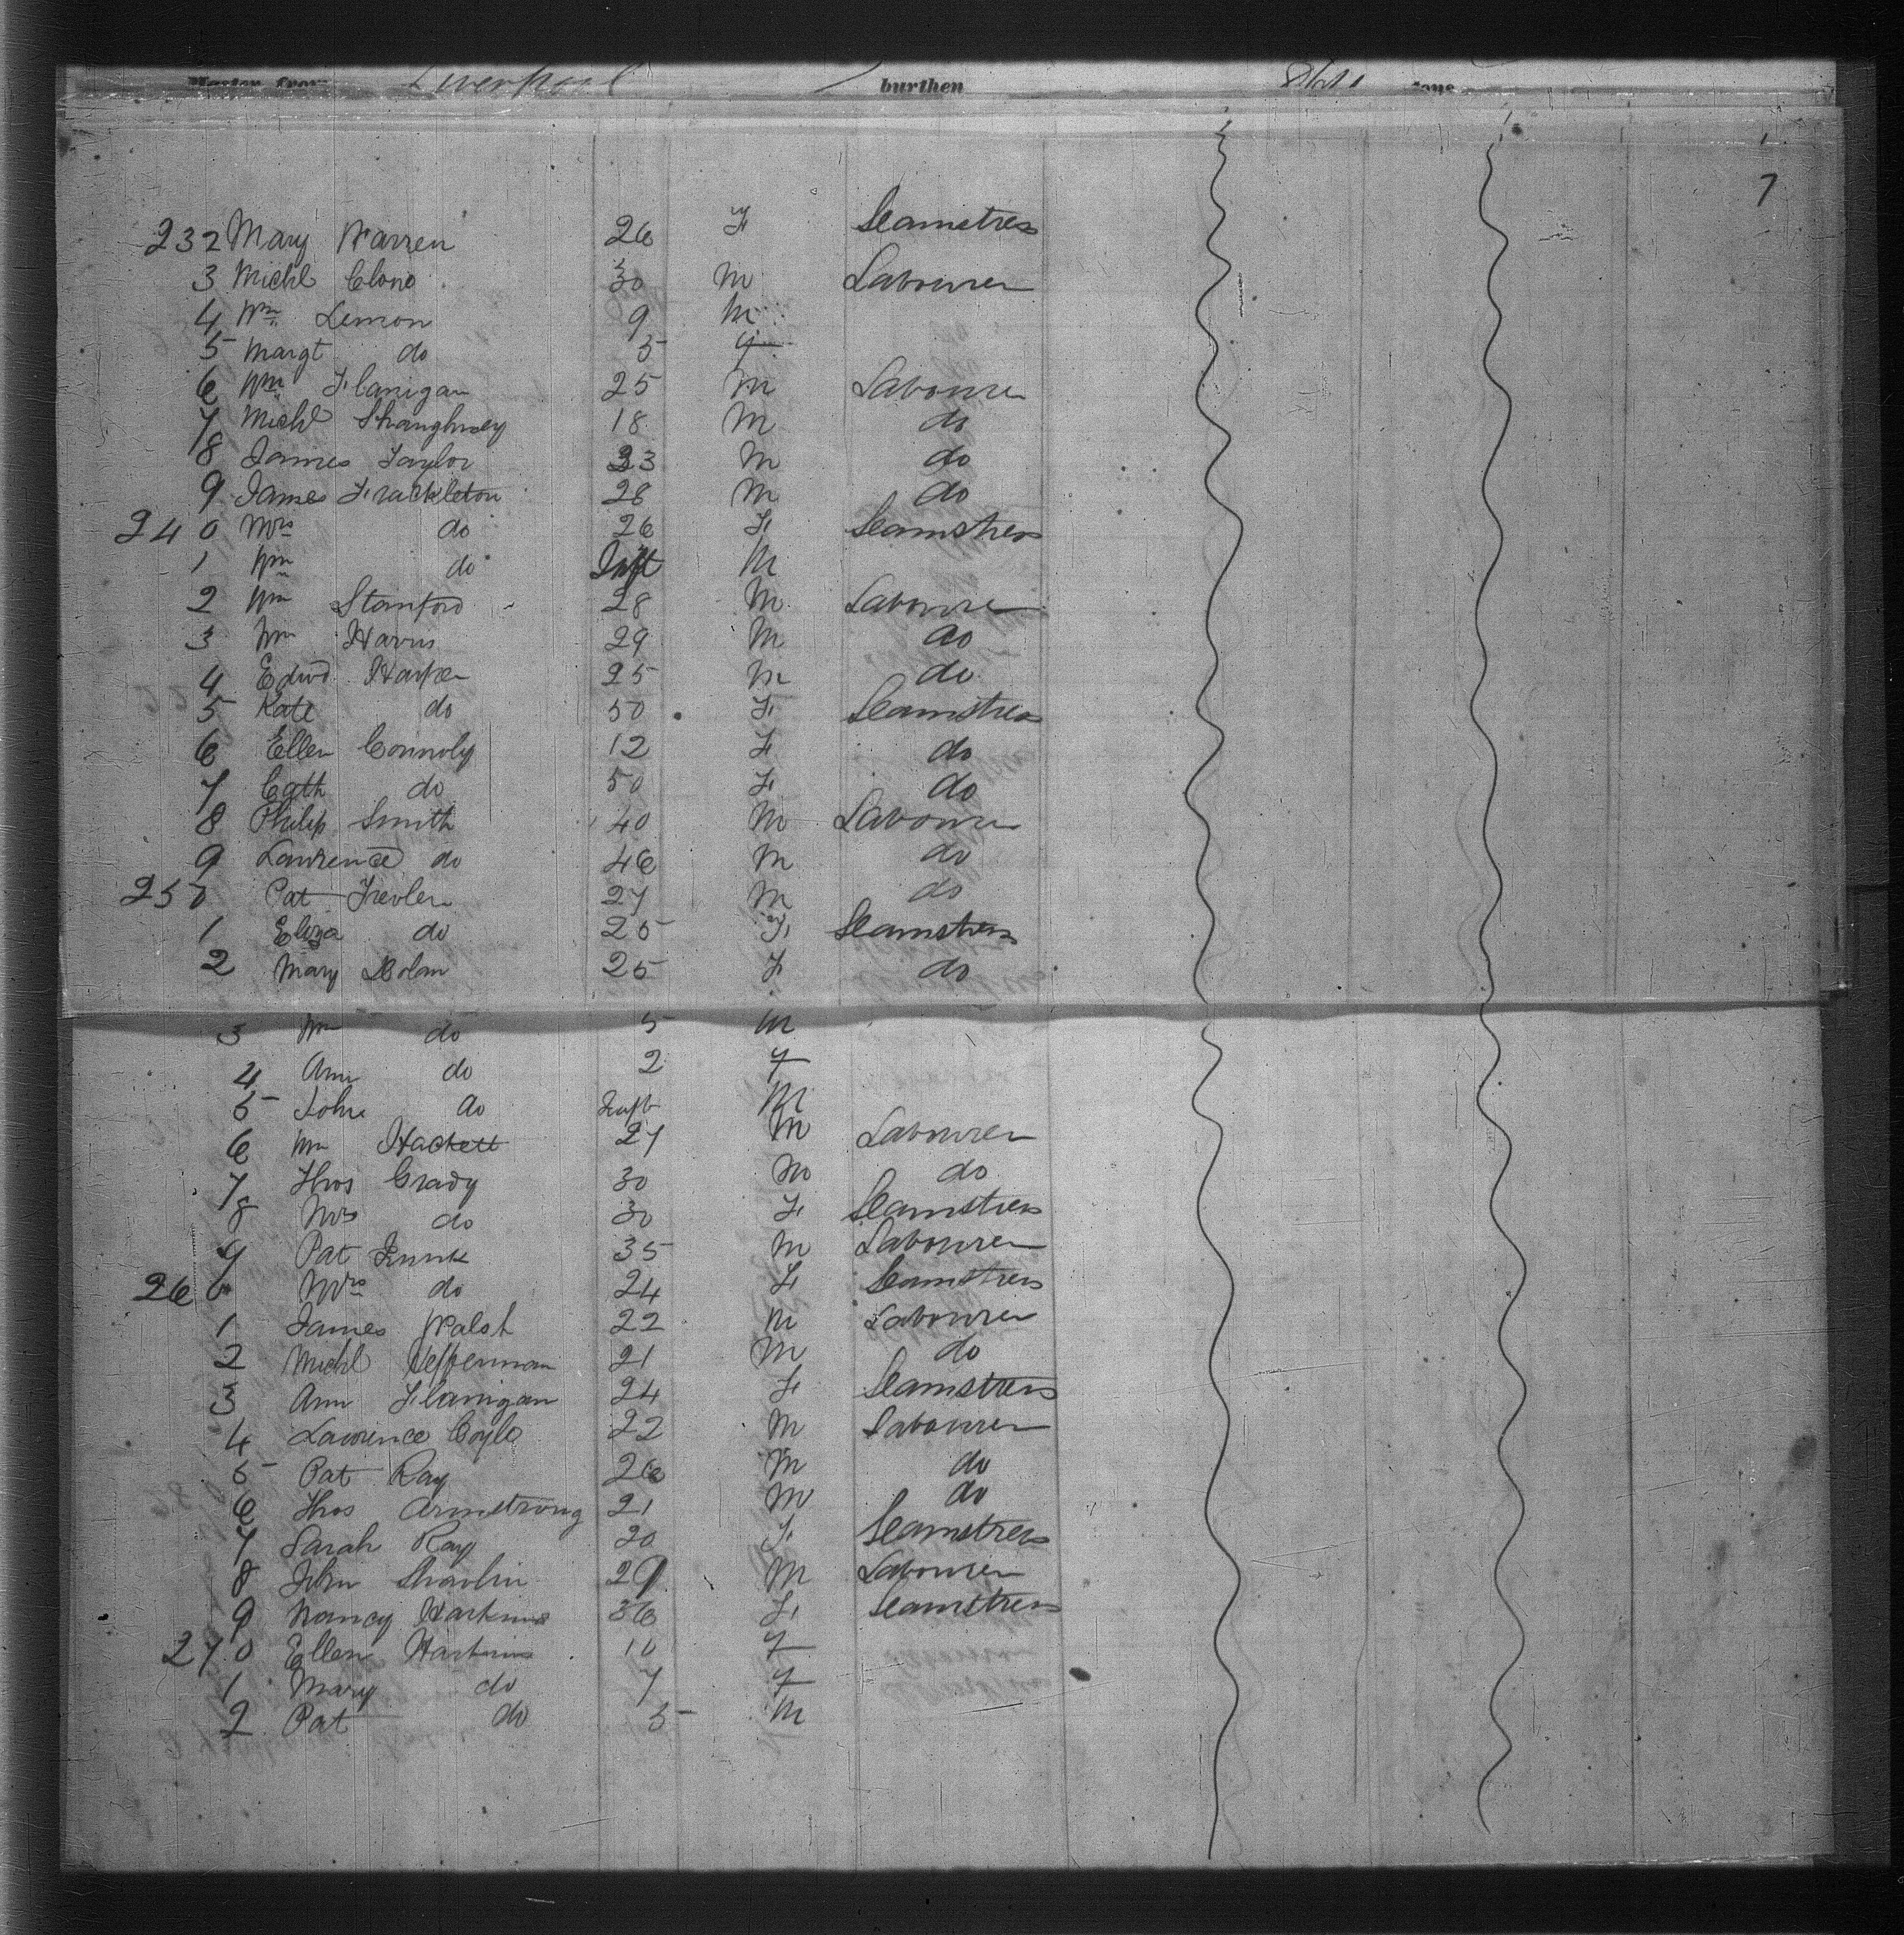 Master from Liverpool burthen tons
7
232 Mary Warren 26 F Seamstres
3 Michl Clono 30 M Labourer
4 Wm Lemon 9 M
5 Margt do 5 F
6 Wm Flanigan 25 M Labourer
7 Michl Shaughnsey 18 M do
8 James Taylor 23 M do
9 James Frackleton 28 M do
240 Mrs do 26 F Seamstress
1 Wm do Inft M
2 Wm Stanford 28 M Labourer
3 Wm Harris 29 M do
4 Edwd 25 M do
5 Kate do 50 F Seamstress
6 Ellen Connoly 12 F do
7 Cath do 50 F do
8 Philip Smith 40 M Labourer
9 Lawrence do 46 M do
250 Pat 27 M do
1 Eliza do 25 F Seamstress
2 Mary Dolan 25 F do
3 Wm do 5 M
4 Ann do 2 F
5 John do Inft M
6 Wm Hackett 27 M Labourer
7 Thos Grady 30 M do
8 Mrs do 30 F Seamstress
9 Pat 35 M Labourer
260 Mrs do 24 F Seamstress
1 James Walsh 22 M Labourer
2 Michl Heffernan 21 M do
3 Ann Flanigan 24 F Seamstress
4 Lawrence Coyle 22 M Labourer
5 Pat Ray 26 M do
6 Thos Armstrong 21 M do
7 Sarah Ray 20 F Seamstress
8 John 29 M Labourer
9 Nancy Harkins 36 F Seamstress
270 Ellen Harkins 10 F
1 Mary do 7 F
2 Pat do 5 M